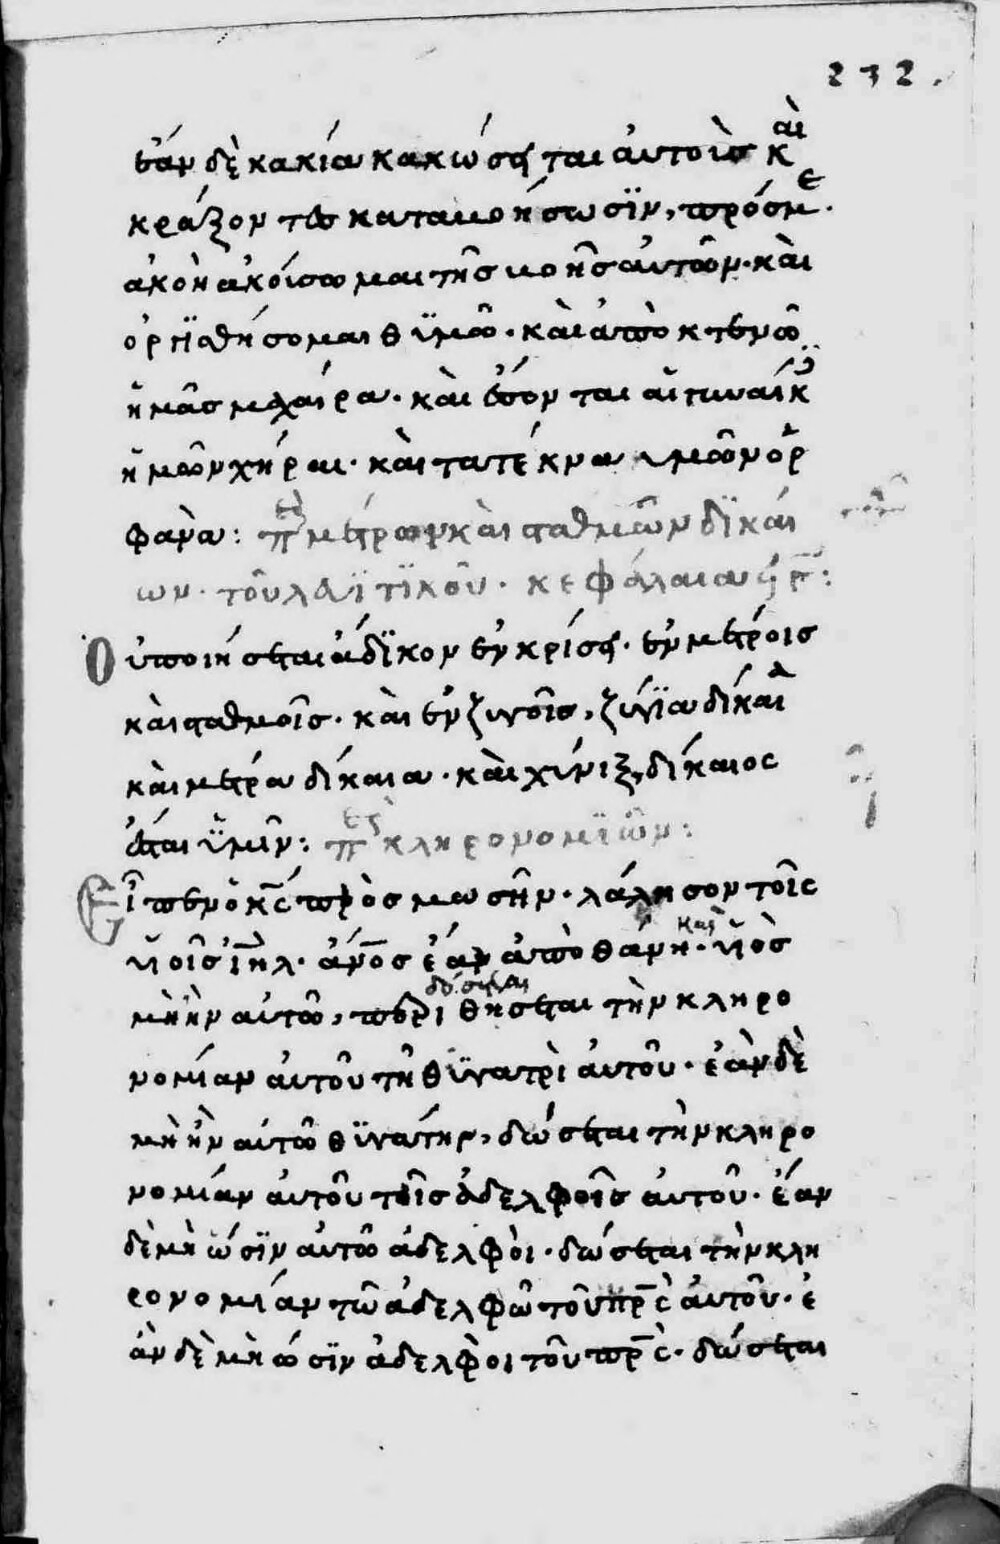 232.
ἐὰν δὲ κακία κακώσηται αὐτοῖσ καὶ
κράξοντο καταβοήσωσϊν, πρόσμε.
ἀκοῆ ἀκούσωμαι τῆσ βοῆσ αὐτῶν· καὶ
ὀργϊσθήσομαι θϋμῶ· καὶ ἀποκτενῶ
ἡμᾶσ μαχαίρα· καὶ ἔσονται αἱ γυναίκ
ἡμῶν χήραι· καὶ τα τέκνα ὑμῶν ὀρ
φανα: περὶ μέτρων καὶ σταθμῶν δϊκαί
ων· τοῦ λεϋϊτϊκοῦ· κεφάλαια
Οὐ ποιήσεται άδϊκον ἐν κρίσει· ἐν μέτροισ
καὶ σταθμοῖσ· καὶ ἐν ζυγοῖσ, ζύγϊα δίκαια
καὶ μέτρα δίκαια· καὶ χίνιξ, δίκαιος
ἔσται ϋμῖν: περὶ κληρονομϊῶν:
Εἶπεν ὁ κς̅ πρὸσ μωσῆν· λάλησον τοῖς
υἱοῖσ ιη̅λ· άνο̅σ ἐάν ἀποθάνη· καὶ υἱὸσ
μὴ ἦν αὐτῶ, περιθήσεται τὴν κληρο
νομίαν ἀυτοῦ τῆ θϋγατρὶ ἀυτοῦ· ἐὰν δὲ
μὴ ἦν αὐτῶ θϋγάτηρ, δώσεται τὴν κληρο
νομίαν ἀυτοῦ τοῖσ ἀδελφοῖσ ἀυτοῦ· ἐάν
δὲ μὴ ὦσϊν ἀυτῶ ἀδελφὸι· δώσεται τὴν κλη
ρονομίαν τῶ ἀδελφῶ τοῦ πρ̅ς ἀυτοῦ· ἐ
ὰν δὲ μὴ ὦσϊν ἀδελφὸι τοῦ πρ̅ς· δώσεται